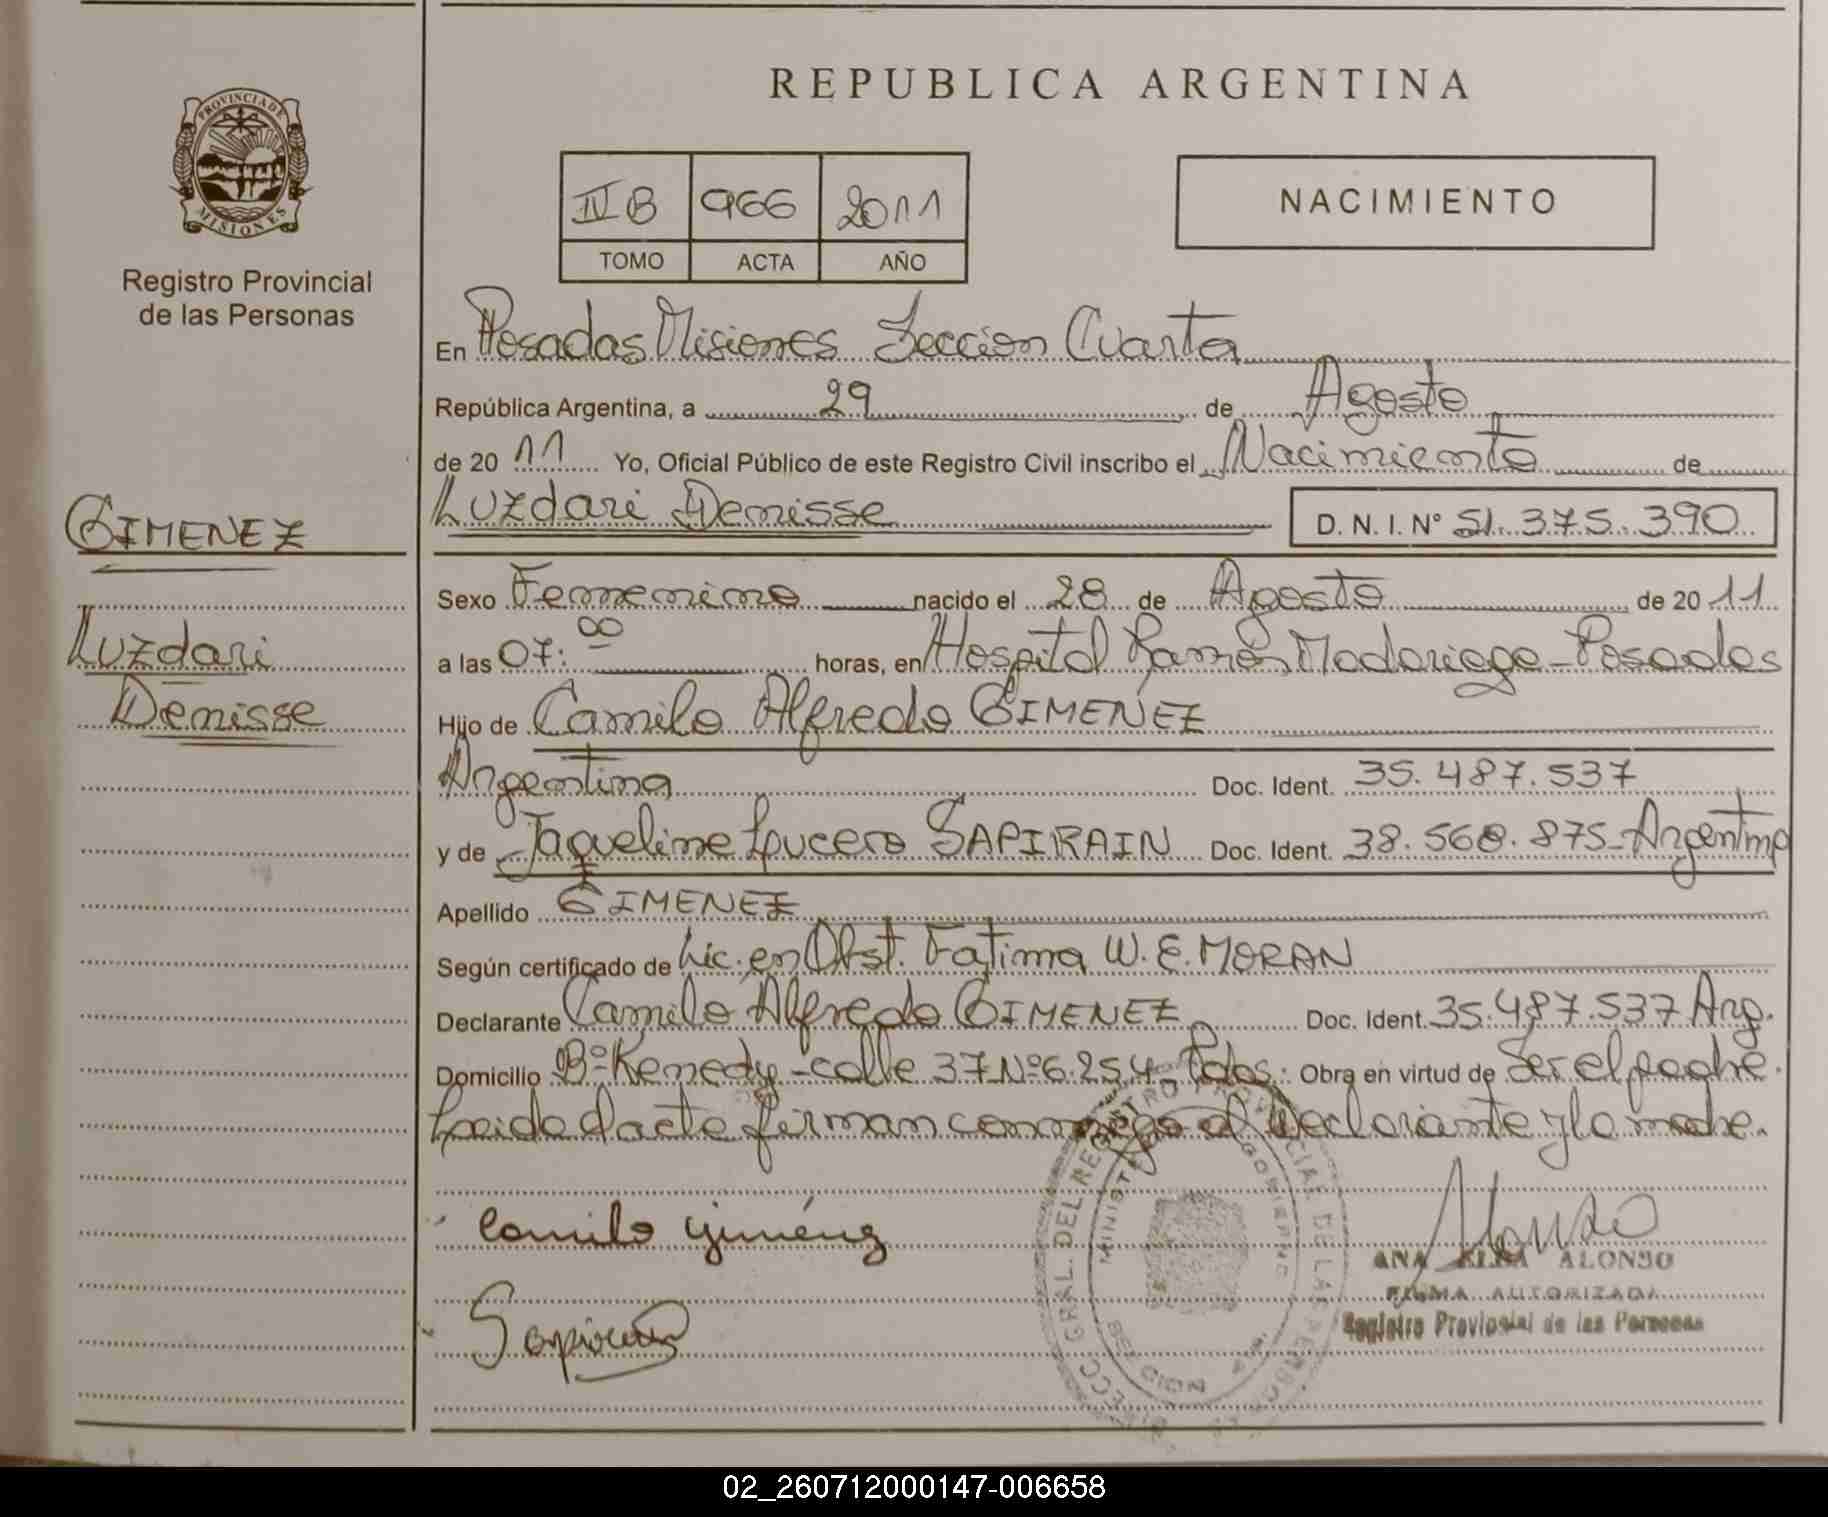 REPUBLICA ARGENTINA
PROVINCIA DE
MISIONES
Registro Provincial
de las Personas
IV B 966 2011
TOMO ACTA AÑO
NACIMIENTO
En Posadas Misiones Seccion Cuarta
República Argentina, a 29 de Agosto
de 20 11 Yo, Oficial Público de este Registro Civil inscribo el Nacimiento de
Luzdari Denisse D. N. I. N° 51.375.390
GIMENEZ
Luzdari
Denisse
Sexo Femenino nacido el 28 de Agosto de 20 11
a las 07:00 horas, en Hospital Ramón Madariaga - Posadas
Hijo de Camilo Alfredo GIMENEZ
Argentina Doc. Ident. 35.487.537
y de Jaqueline Lucero SAPIRAIN Doc. Ident. 38.568.875 - Argentina
Apellido GIMENEZ
Según certificado de Lic. en Obst. Fatima W. E. MORAN
Declarante Camilo Alfredo GIMENEZ Doc. Ident. 35.487.537 Arg.
Domicilio B° Kenedy - calle 37 N° 6.254, Pdas. Obra en virtud de Ser el padre.
Leida el acta firman conmigo el declarante y la madre.
Camilo Giménez
ANA ELBA ALONSO
FIRMA AUTORIZADA
Registro Provincial de las Personas
Sapirain
GRAL. DEL REGISTRO PROVINCIAL DE LAS PERSONAS
MINISTERIO GOBIERNO
02_260712000147-006658